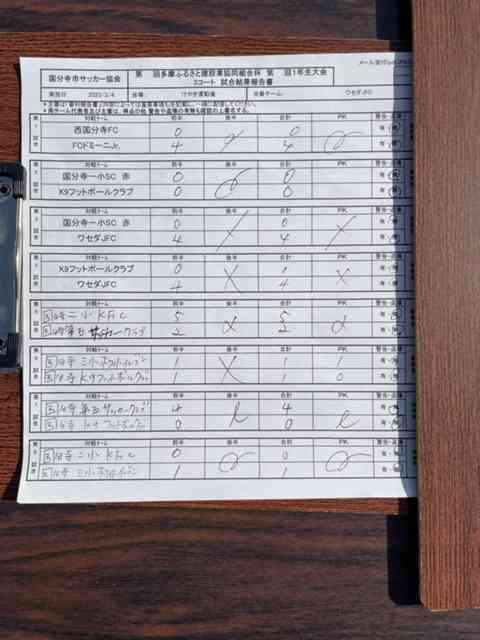 国分寺市サッカー協会 第 回多摩ふるさと建設業協同組合杯 第 回1年生大会
Eコート 試合結果報告書
実施日 2023/3/4 会場: けやき運動場 当番チーム: ワセダJFC
対戦チーム 前半 後半 合計 PK 警告・退場
西国分寺FC 0 0 有・無
FCドミーニJr. 4 4 有・無
対戦チーム 前半 後半 合計 PK 警告・退場
国分寺一小SC 赤 0 0 有・無
K9フットボールクラブ 0 0 有・無
対戦チーム 前半 後半 合計 PK 警告・退場
国分寺一小SC 赤 0 0 有・無
ワセダJFC 4 4 有・無
対戦チーム 前半 後半 合計 PK 警告・退場
K9フットボールクラブ 0 0 有・無
ワセダJFC 4 4 有・無
対戦チーム 前半 後半 合計 PK 警告・退場
二小 KFC 5 5 有・無
第五サッカークラブ 2 2 有・無
対戦チーム 前半 後半 合計 PK 警告・退場
三小 1 1 1 有・無
K9フットボールクラブ 1 1 0 有・無
対戦チーム 前半 後半 合計 PK 警告・退場
第五サッカークラブ 4 4 有・無
K9フットボールクラブ 0 0 有・無
対戦チーム 前半 後半 合計 PK 警告・退場
二小 KFC 0 0 有・無
三小 1 1 有・無